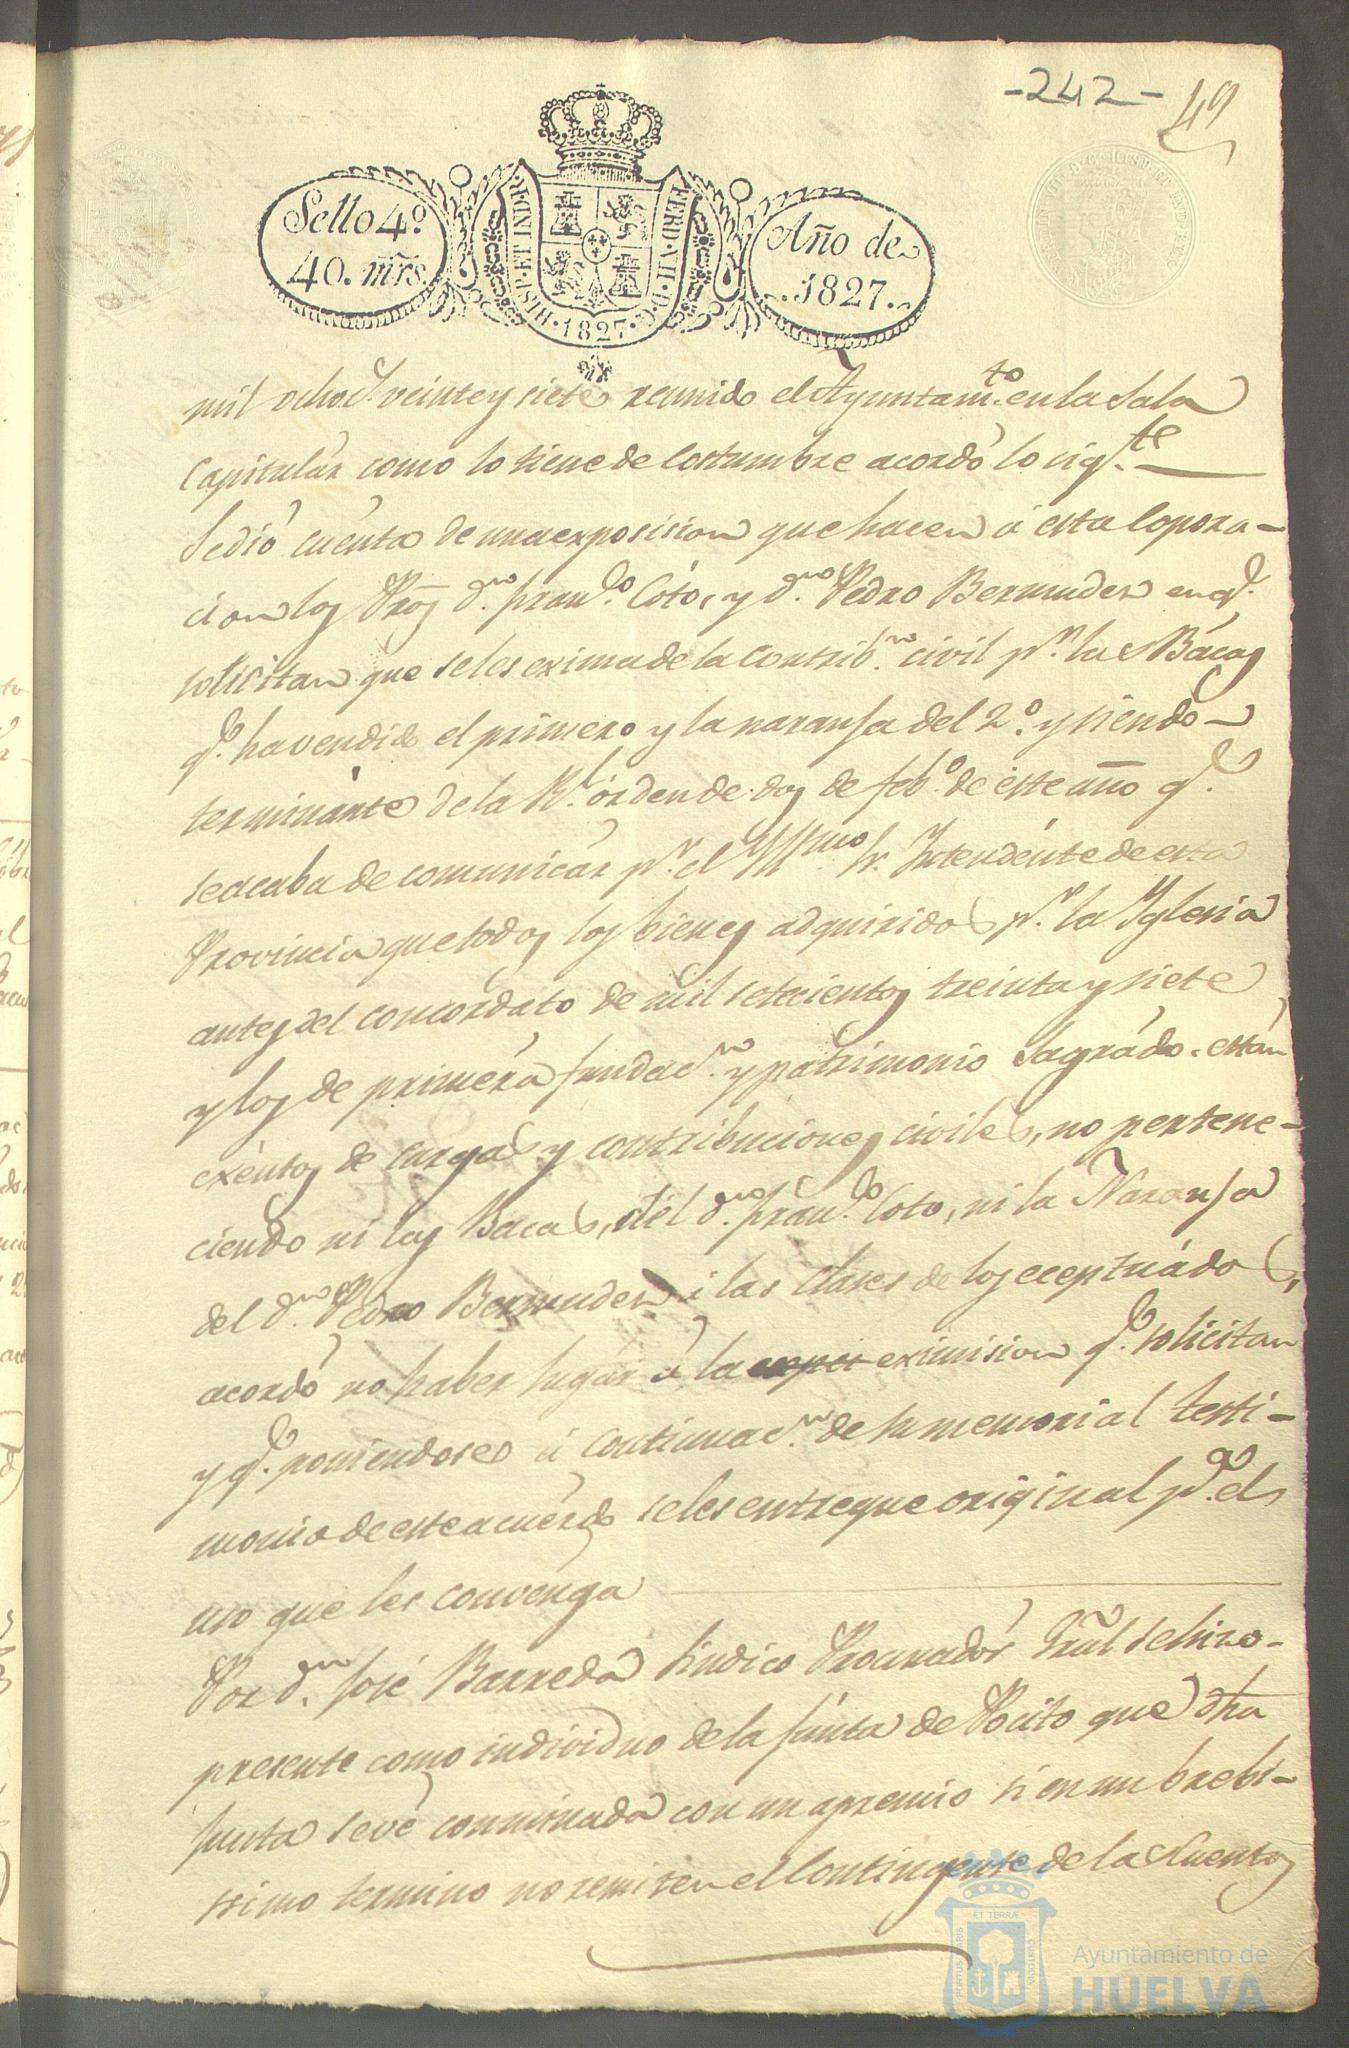 -242-
49
Sello 4º
40. mrs
HISP. ET IND. R.
FERD. VII. D. G.
1827
Año de
1827.
mil ochoc.s veinte y siete reunido el Ayuntam.to en la Sala
Capitulár como lo tiene de costumbre acordó lo sig.te
Se dió cuenta de una exposision que hacen á esta Copora-
cion los Pros d.n Fran.co Cóto, y d.n Pedro Bermudes en q.e
solicitan que se les exima de la contrib.n civil p.r las Bácas
q.e ha vendido el primero y la naranja del 2.o y siendo
terminánte de la R.l órden de dos de feb.o de este año q.e
se acaba de comunicar p.r el Yllmo. Sr. Intendénte de esta
Provincia que todos los bienes adquiridos p.r la Yglesia
antes del concordato de mil setecientos treinta y siete
y los de priméra fundac.n y patrimonio Sagrádo. están
exéntos de cargas y contribuciones civiles, no pertene-
ciendo ni las Bacas, del d.n Fran.co Coto, ni la Naranja
del d.n Pedro Bermudes á las clases de los eceptuádos,
acordó no haber lugar á la eximision q.e solicitan
y q.e poniendose á continuac.n de su memorial testi-
monio de este acuérdo se les entregue original p.a el
uso que les convenga
Por d.n José Barreda Sindico Procuradór Gral se hizo-
presente como individuo de la Junta de Pocito que dha
Junta se vé conminada con un apremio si en un brebi-
ssimo termino no remiten el contingente de las Cuentas
PORTUS MARIS
ET TERRÆ
CUSTODIA
Ayuntamiento de
HUELVA